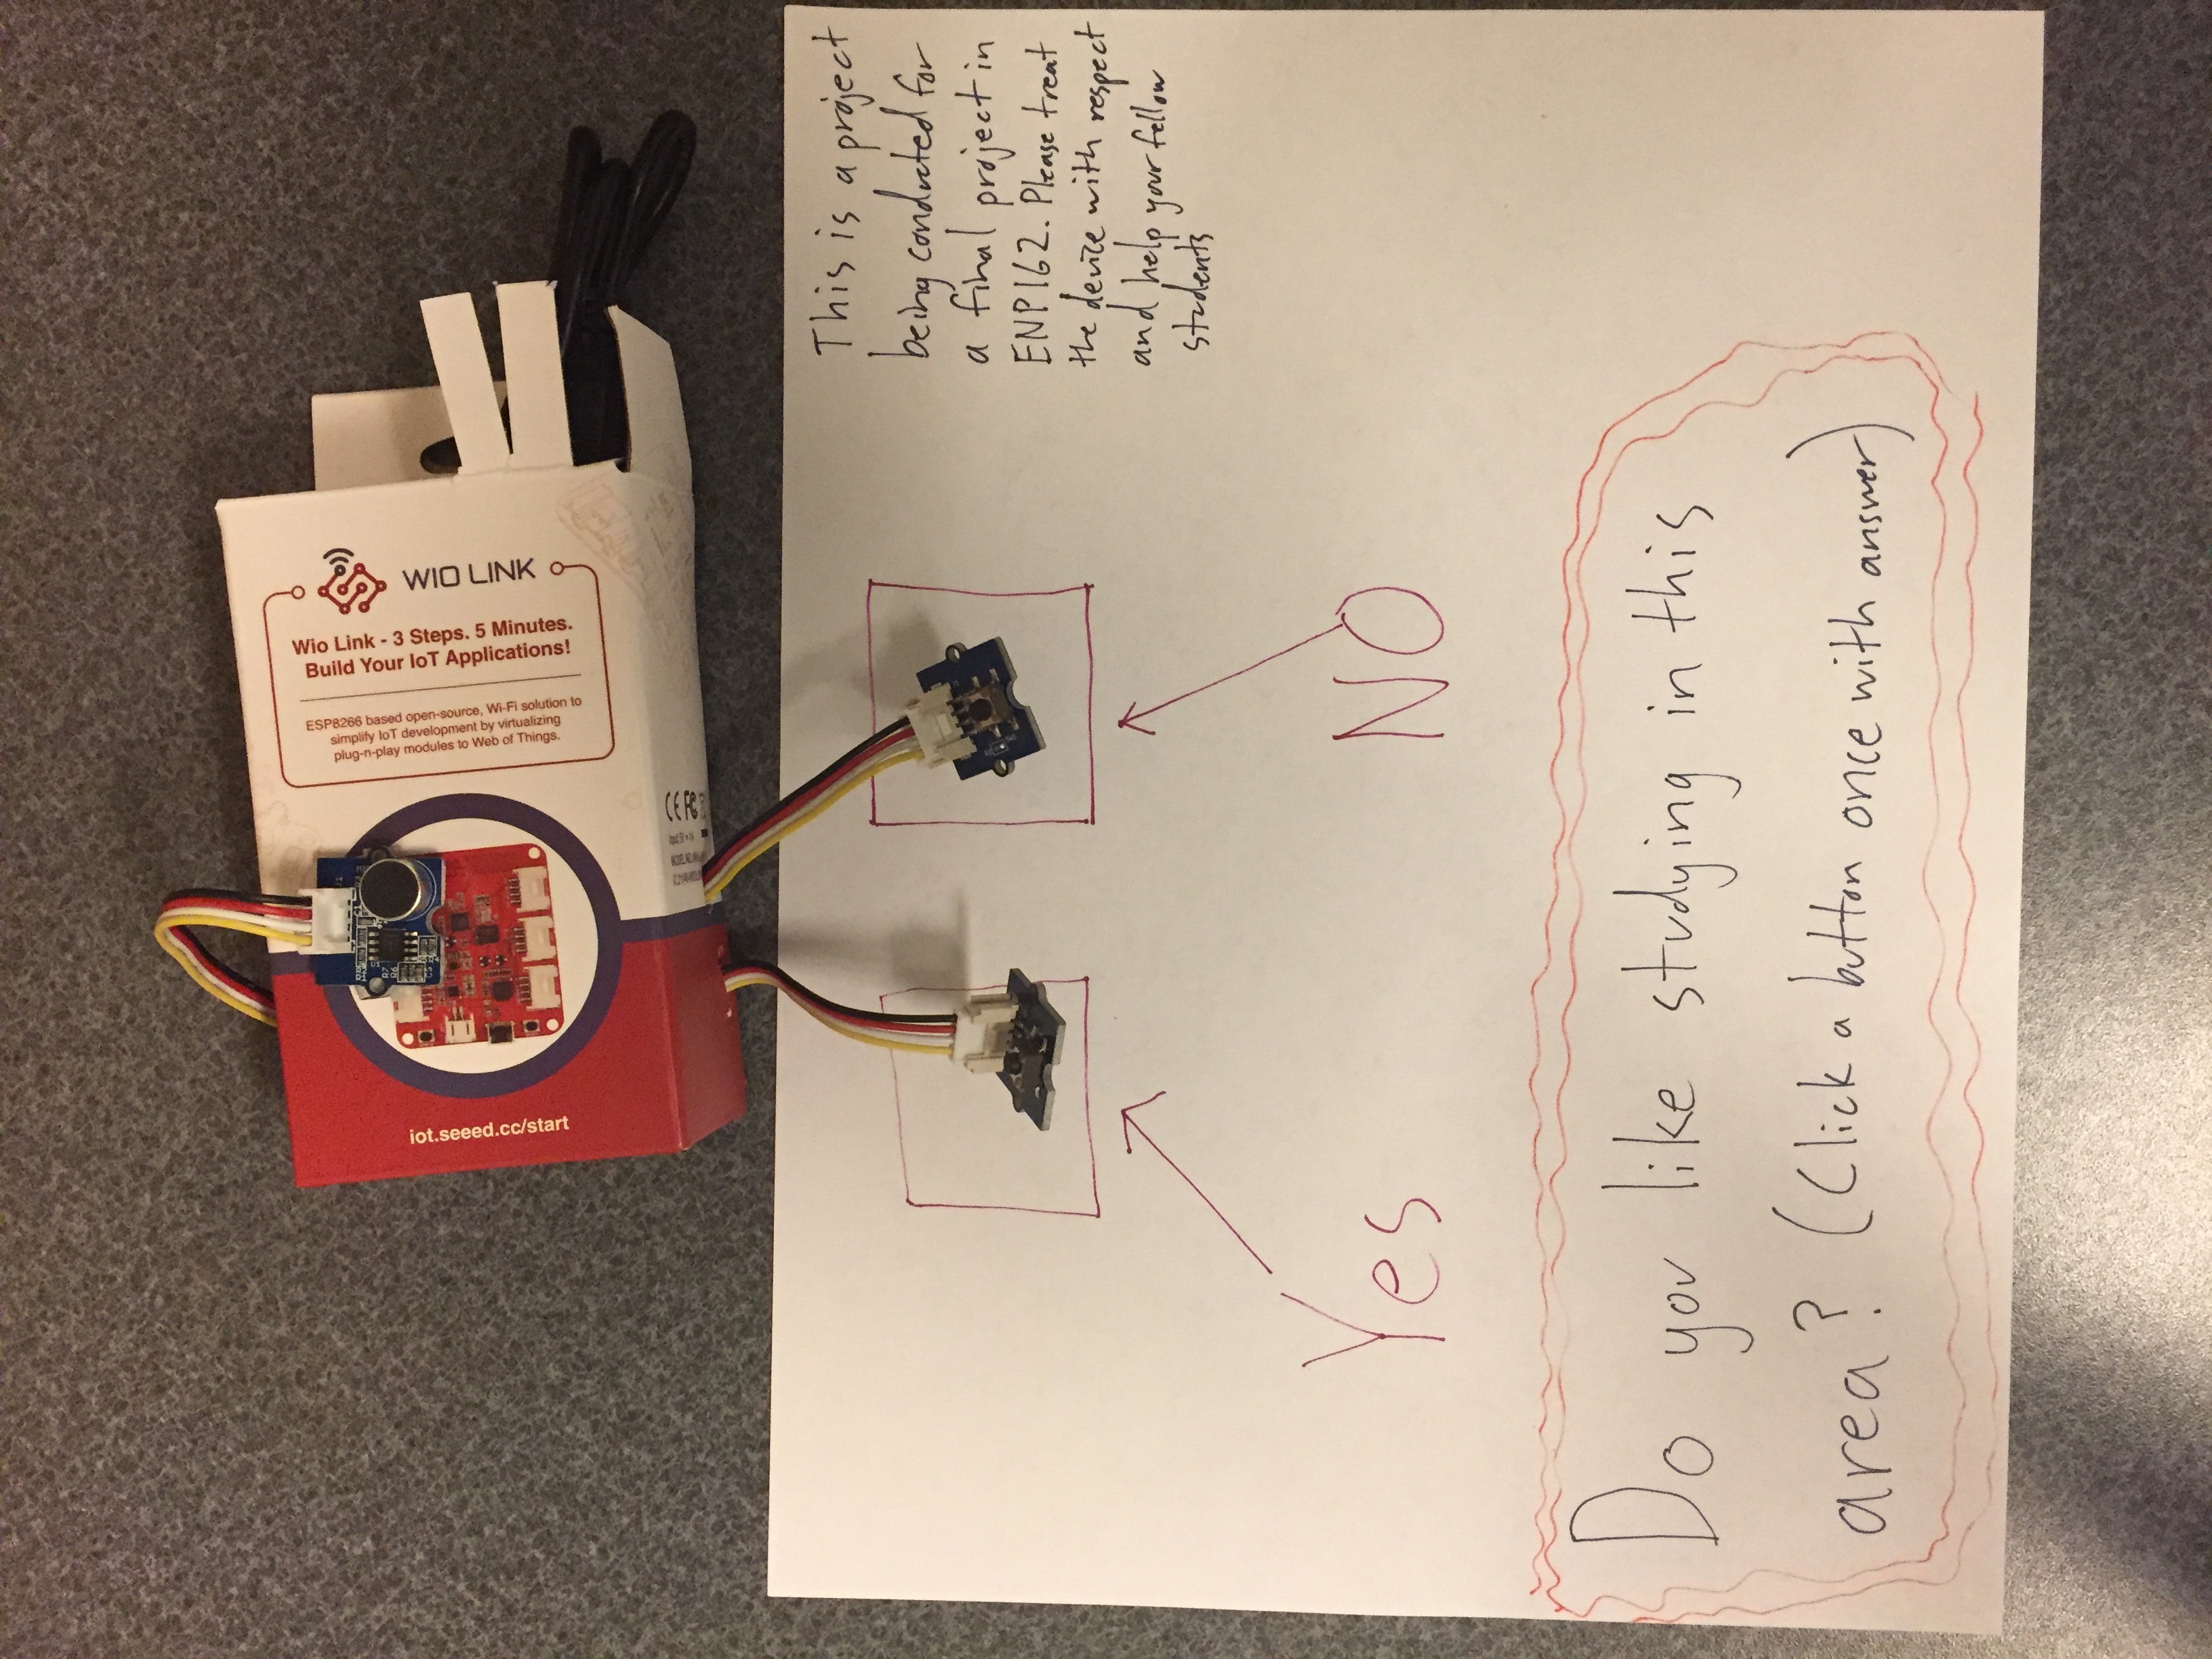 WIO LINK
Wio Link - 3 Steps. 5 Minutes.
Build Your IoT Applications!
ESP8266 based open-source, Wi-Fi solution to
simplify IoT development by virtualizing
plug-n-play modules to Web of Things.
iot.seeed.cc/start
CE FC
This is a project
being conducted for
a final project in
ENP162. Please treat
the device with respect
and help your fellow
students
Yes
NO
Do you like studying in this
area? (Click a button once with answer)